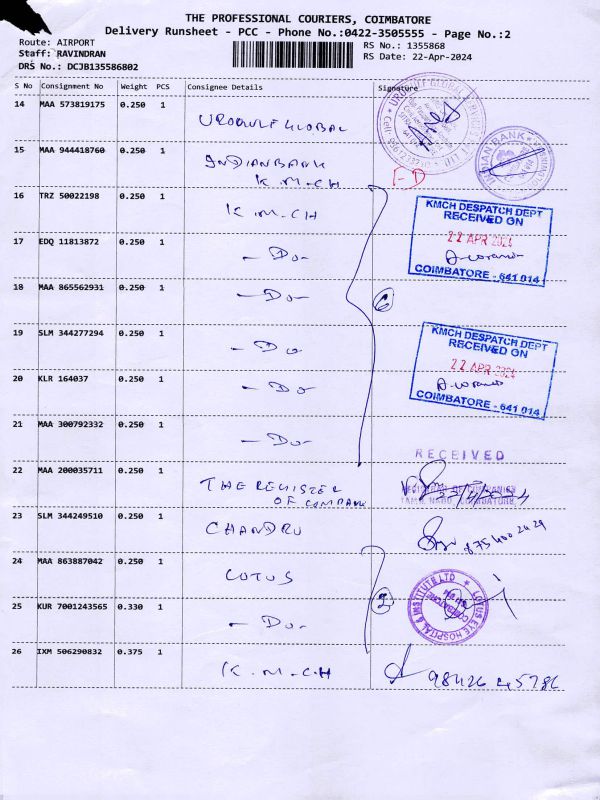 THE PROFESSIONAL COURIERS, COIMBATORE
Delivery Runsheet - PCC - Phone No.:0422-3505555 - Page No.:2
Route: AIRPORT
Staff: RAVINDRAN
DRS No.: DCJB135586802
RS No.: 1355868
RS Date: 22-Apr-2024
S No Consignment No Weight PCS Consignee Details Signature
14 MAA 573819175 0.250 1 GLOBAL
15 MAA 944418760 0.250 1 INDIAN BANK
K.M.CH
INDIAN BANK
FD
16 TRZ 50022198 0.250 1 K.M.CH
KMCH DESPATCH DEPT
RECEIVED ON
22 APR 2024
COIMBATORE - 641 014
17 EDQ 11813872 0.250 1 - Do -
18 MAA 865562931 0.250 1 - Do -
6
19 SLM 344277294 0.250 1 - Do
KMCH DESPATCH DEPT
RECEIVED ON
22 APR 2024
COIMBATORE - 641 014
20 KLR 164037 0.250 1 - Do -
21 MAA 300792332 0.250 1 - Do -
RECEIVED
22 MAA 200035711 0.250 1 THE REGISTER
OF COMPANK
23 SLM 344249510 0.250 1 CHANDRU
24 MAA 863887042 0.250 1 LOTUS
2
LOTUS EYE HOSPITAL & INSTITUTE LTD
COIMBATORE
25 KUR 7001243565 0.330 1 - Do -
26 IXM 506290832 0.375 1 K.M.C.H
98426 45786